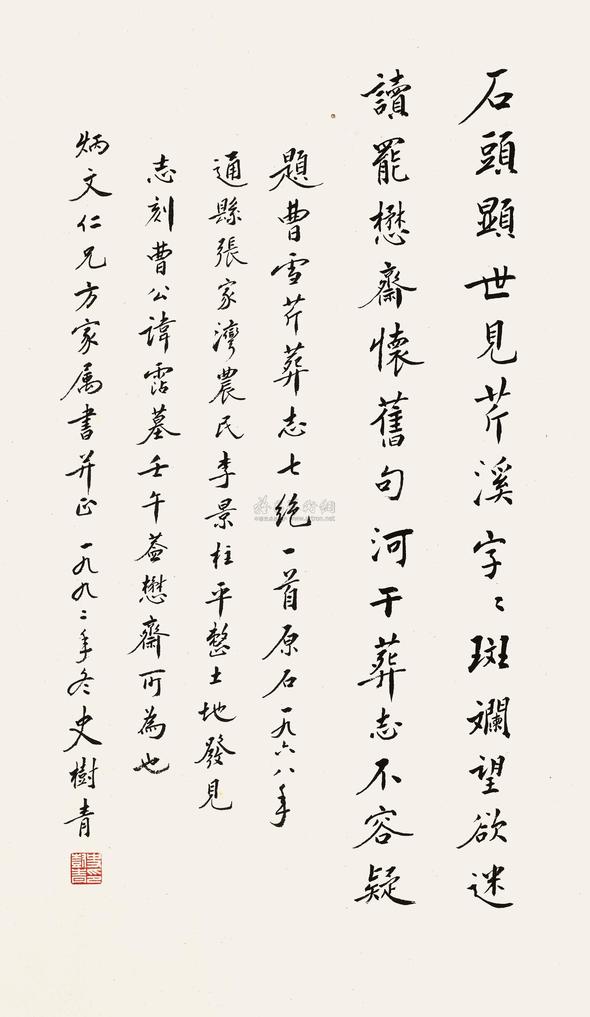 石頭顯世見芹溪字〻斑斕望欲迷
讀罷懋齋懷舊句河干葬志不容疑
題曹雪芹葬志七绝一首原石一九六八年
通縣張家灣農民李景柱平整土地發見
志刻曹公諱霑墓壬午蓋懋齋所為也
炳文仁兄方家属書并正一九九二年冬史樹青